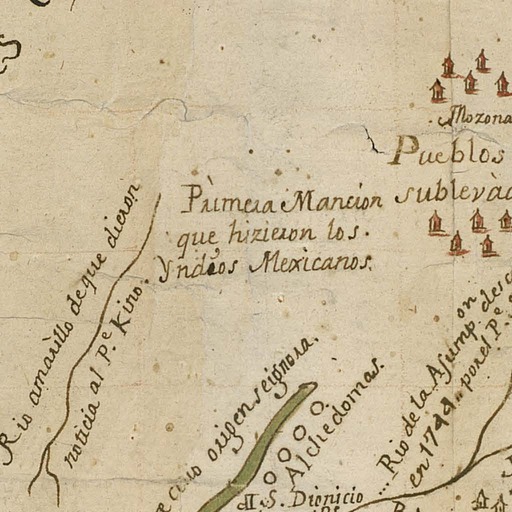 Mozona
Pueblos
sublevad
Primera Mancion
que hizieron los.
Yndios Mexicanos.
Rio amarillo de que dieron
noticia al P.e Kino.
cuio origen se ignora.
Alchedomas.
Rio de la Asump.on desc
en 1744. por el P.e
S. Dionicio